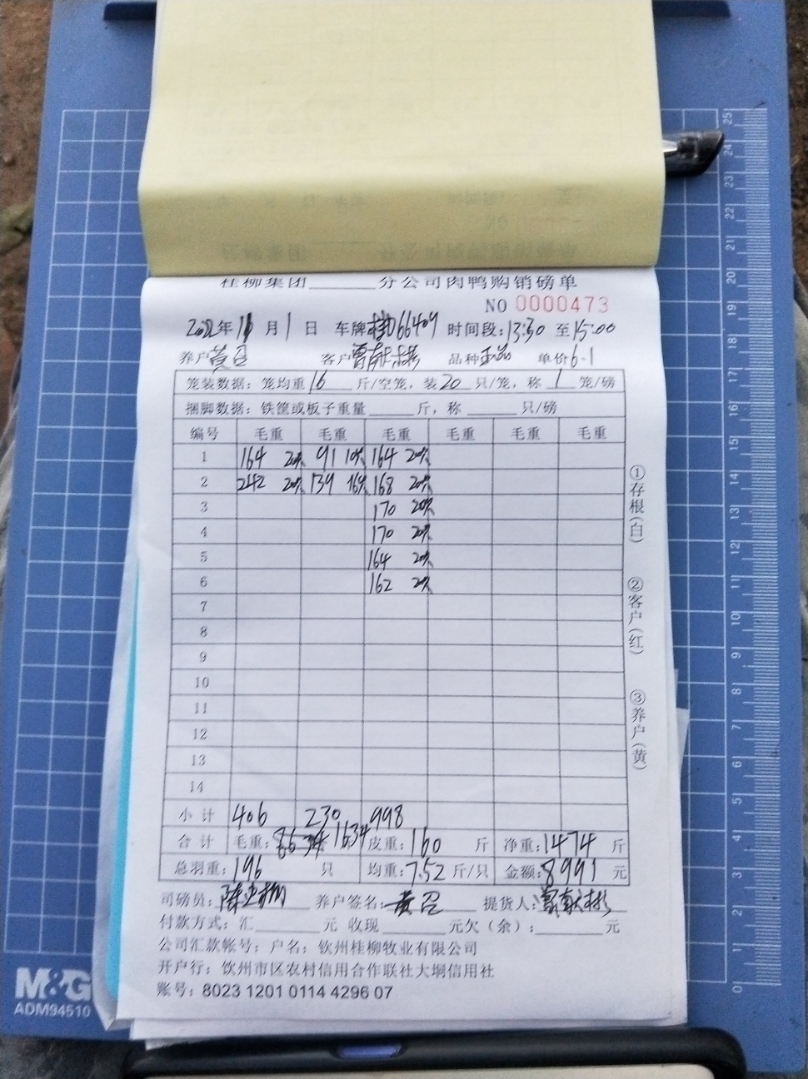 桂柳集团______分公司肉鸭购销磅单
NO 0000473
年 月 1 日 车牌 66409 时间段:13:30 至 15:00
养户 黄 客户 品种 单价 6.1
笼装数据: 笼均重 16 斤/空笼, 装 20 只/笼, 称 1 笼/磅
捆脚数据: 铁筐或板子重量______斤, 称______只/磅
编号 毛重 毛重 毛重 毛重 毛重 毛重
1 164 20只 91 10只 164 20只
2 242 20只 139 16只 168 20只
3 170 20只
4 170 20只
5 164 20只
6 162 20只
7
8
9
10
11
12
13
14
小计 406 230 998
合计 毛重: 1634 皮重: 160 斤 净重: 1474 斤
总羽重: 196 只 均重: 7.52 斤/只 金额: 8991 元
司磅员: 陈 养户签名: 黄 提货人:
付款方式: 汇______元 收现______元欠(余):______元
公司汇款帐号: 户名: 钦州桂柳牧业有限公司
开户行: 饮州市区农村信用合作联社大垌信用社
账号: 8023 1201 0114 4296 07
①存根(白)
②客户(红)
③养户(黄)
M&G
ADM94510
0 1 2 3 4 5 6 7 8 9 10 11 12 13 14 15 16 17 18 19 20 21 22 23 24 25